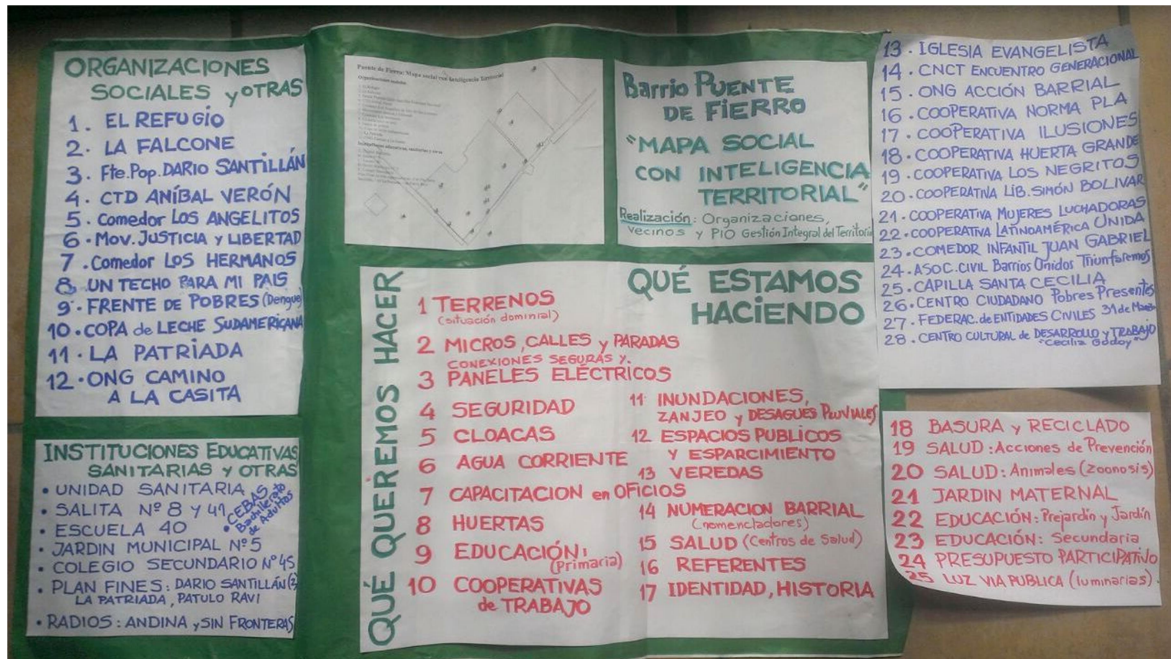 ORGANIZACIONES
SOCIALES y OTRAS
1. EL REFUGIO
2. LA FALCONE
3. Fte. Pop. DARIO SANTILLÁN
4. CTD ANÍBAL VERÓN
5. Comedor LOS ANGELITOS
6. Mov. JUSTICIA y LIBERTAD
7. Comedor LOS HERMANOS
8. UN TECHO PARA MI PAIS
9. FRENTE DE POBRES (Dengue)
10. COPA de LECHE SUDAMERICANA
11. LA PATRIADA
12. ONG CAMINO
A LA CASITA
INSTITUCIONES EDUCATIVAS
SANITARIAS y OTRAS
• UNIDAD SANITARIA
• SALITA Nº 8 y 41
• ESCUELA 40
• CEBAS
Bachillerato
de Adultos
• JARDIN MUNICIPAL Nº 5
• COLEGIO SECUNDARIO Nº 45
• PLAN FINES: DARIO SANTILLÁN
LA PATRIADA, PATULO RAVI
• RADIOS: ANDINA y SIN FRONTERAS
Puente de Fierro: Mapa social con Inteligencia Territorial
Barrio PUENTE
DE FIERRO
"MAPA SOCIAL
CON INTELIGENCIA
TERRITORIAL"
Realización: Organizaciones,
vecinos y PIO Gestión Integral del Territorio
QUÉ QUEREMOS HACER
QUÉ ESTAMOS
HACIENDO
1 TERRENOS
(situación dominial)
2 MICROS, CALLES y PARADAS
CONEXIONES SEGURAS y.
3 PANELES ELÉCTRICOS
4 SEGURIDAD
5 CLOACAS
6 AGUA CORRIENTE
7 CAPACITACION en OFICIOS
8 HUERTAS
9 EDUCACIÓN:
(Primaria)
10 COOPERATIVAS
de TRABAJO
11 INUNDACIONES,
ZANJEO y DESAGUES PLUVIALES
12 ESPACIOS PUBLICOS
y ESPARCIMIENTO
13 VEREDAS
14 NUMERACION BARRIAL
(nomencladores)
15 SALUD (Centros de Salud)
16 REFERENTES
17 IDENTIDAD, HISTORIA
13. IGLESIA EVANGELISTA
14. CNCT ENCUENTRO GENERACIONAL
15. ONG ACCIÓN BARRIAL
16. COOPERATIVA NORMA PLA
17. COOPERATIVA ILUSIONES
18. COOPERATIVA HUERTA GRANDE
19. COOPERATIVA LOS NEGRITOS
20. COOPERATIVA LIB. SIMÓN BOLIVAR
21. COOPERATIVA MUJERES LUCHADORAS
22. COOPERATIVA LATINOAMÉRICA UNIDA
23. COMEDOR INFANTIL JUAN GABRIEL
24. ASOC. CIVIL Barrios Unidos Triunfaremos
25. CAPILLA SANTA CECILIA
26. CENTRO CIUDADANO Pobres Presentes
27. FEDERAC. de ENTIDADES CIVILES 31 de
28. CENTRO CULTURAL de DESARROLLO y TRABAJO
"Cecilia Godoy"
18 BASURA y RECICLADO
19 SALUD: Acciones de Prevención
20 SALUD: Animales (zoonosis)
21 JARDIN MATERNAL
22 EDUCACIÓN: Prejardín y Jardín
23 EDUCACIÓN: Secundaria
24 PRESUPUESTO PARTICIPATIVO
25 LUZ VIA PUBLICA (luminarias).